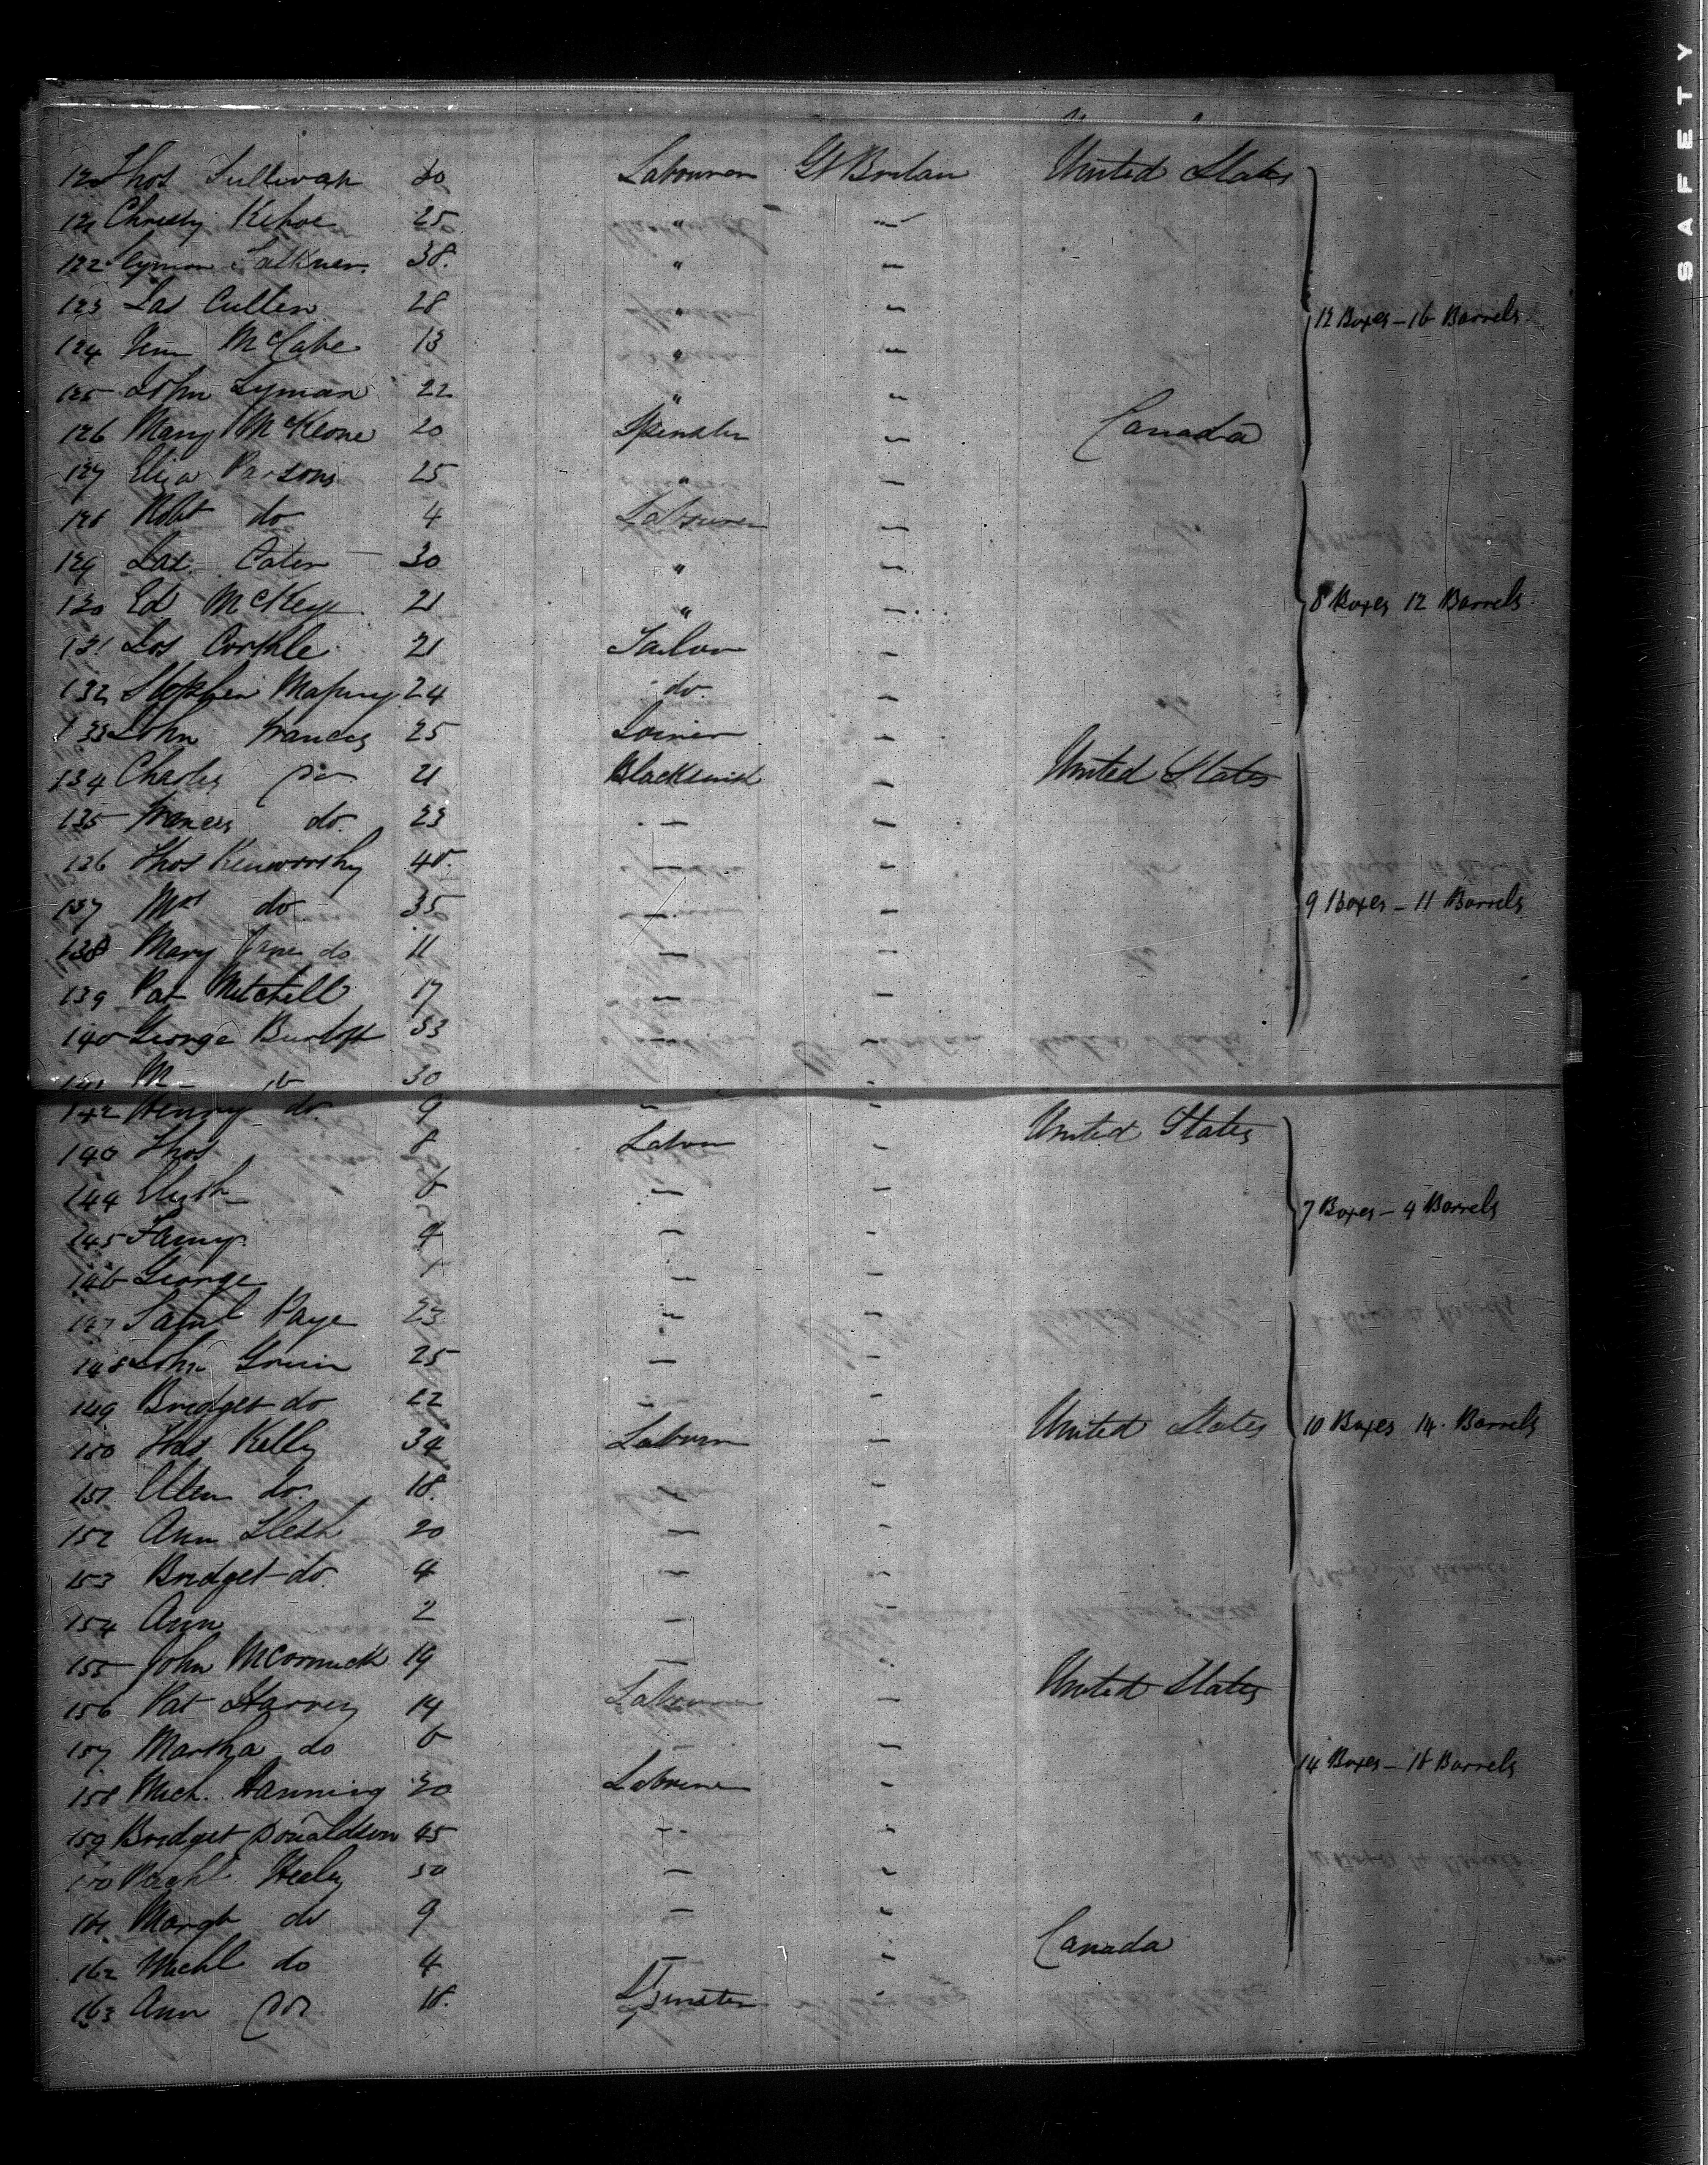 SAFETY
120 Thos Sullivan 20 Labourer Gt Britain United States
121 Christy Kehoe 25 " –
122 Symon Falkner 38 " –
123 Jas Cullen 28 " – 12 Boxes – 16 Barrels
124 McCabe 13 " –
125 John Lyman 22 " –
126 Mary McKeone 20 Spinster – Canada
127 Eliza Parsons 25 " –
128 Robt do 4 Labourer –
129 Jas. 30 " –
130 Ed McKey 21 " – 8 Boxes 12 Barrels
131 Jos Corkhle 21 Tailor –
132 Stephen 24 do. –
133 John Francis 25 Joiner –
134 Charles do 21 Blacksmith – United States
135 Frances do. 23 – –
136 Thos Kenworthy 48 – –
137 Mrs do 35 – – 9 Boxes – 11 Barrels
138 Mary Jane do 11 – –
139 Pat Mitchell 17 – –
140 George 33
141 M – do 30 –
142 Henry do 9 – – United States
143 Thos 8 Labour –
144 6 – –
145 Fanny 4 – – 7 Boxes – 4 Barrels
146 George – –
147 Saml Paye 23 – –
148 John 25 – –
149 Bridget do 22 – –
150 Thos Kelly 34 Labourer – United States 10 Boxes 14 Barrels
151 Ellen do. 18 –
152 Ann 20 – –
153 Bridget do. 4 – –
154 Ann 2 – –
155 John McCormick 19 –
156 Pat Harvey 14 Labourer – United States
157 Martha do 6 – –
158 Mich. Hanning 20 Labourer – 14 Boxes – 18 Barrels
159 Bridget Donaldson 45 – –
160 Healey 50 – –
161 Margt do 9 – –
162 Michl do 4 – – Canada
163 Ann do 18 Spinster –